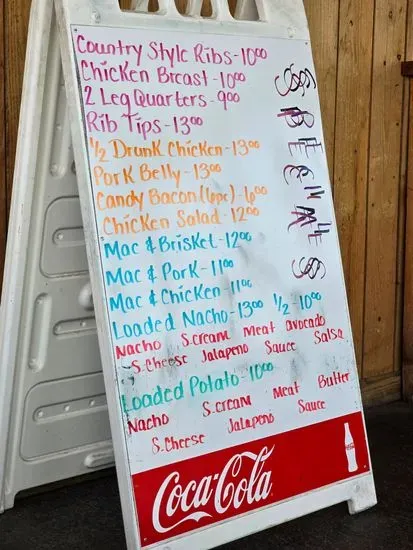 Country Style Ribs - 10⁰⁰
Chicken Breast - 10⁰⁰
2 Leg Quarters - 9⁰⁰
Rib Tips - 13⁰⁰
½ Drunk Chicken - 13⁰⁰
Pork Belly - 13⁰⁰
Candy Bacon (6pc) - 6⁰⁰
Chicken Salad - 12⁰⁰
Mac & Brisket - 12⁰⁰
Mac & Pork - 11⁰⁰
Mac & Chicken - 11⁰⁰
Loaded Nacho - 13⁰⁰ ½ - 10⁰⁰
Nacho S.cream meat avocado
S.cheese Jalapeno Sauce Salsa
Loaded Potato - 10⁰⁰
Nacho S.cream Meat Butter
S.Cheese Jalapeno Sauce
Coca-Cola